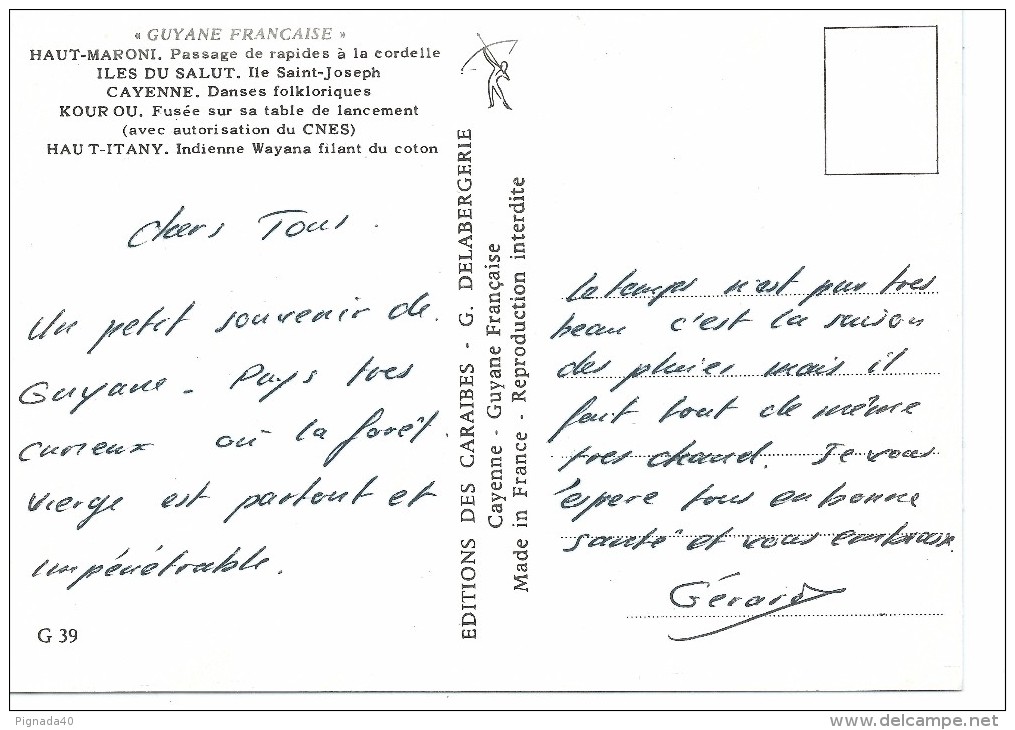 « GUYANE FRANCAISE »
HAUT-MARONI. Passage de rapides à la cordelle
ILES DU SALUT. Ile Saint-Joseph
CAYENNE. Danses folkloriques
KOUROU. Fusée sur sa table de lancement
(avec autorisation du CNES)
HAUT-ITANY. Indienne Wayana filant du coton
Chers Tous.
Un petit souvenir de
Guyane - Pays tres
curieux où la forêt
vierge est partout et
impénétrable.
G 39
EDITIONS DES CARAIBES - G. DELABERGERIE
Cayenne - Guyane Française
Made in France - Reproduction interdite
le temps n'est pas tres
beau c'est la saison
des pluies mais il
fait tout de même
tres chaud. Je vous
éspere tous en bonne
santé et vous embrasse.
Gérard
Pignada40
delcampe.net